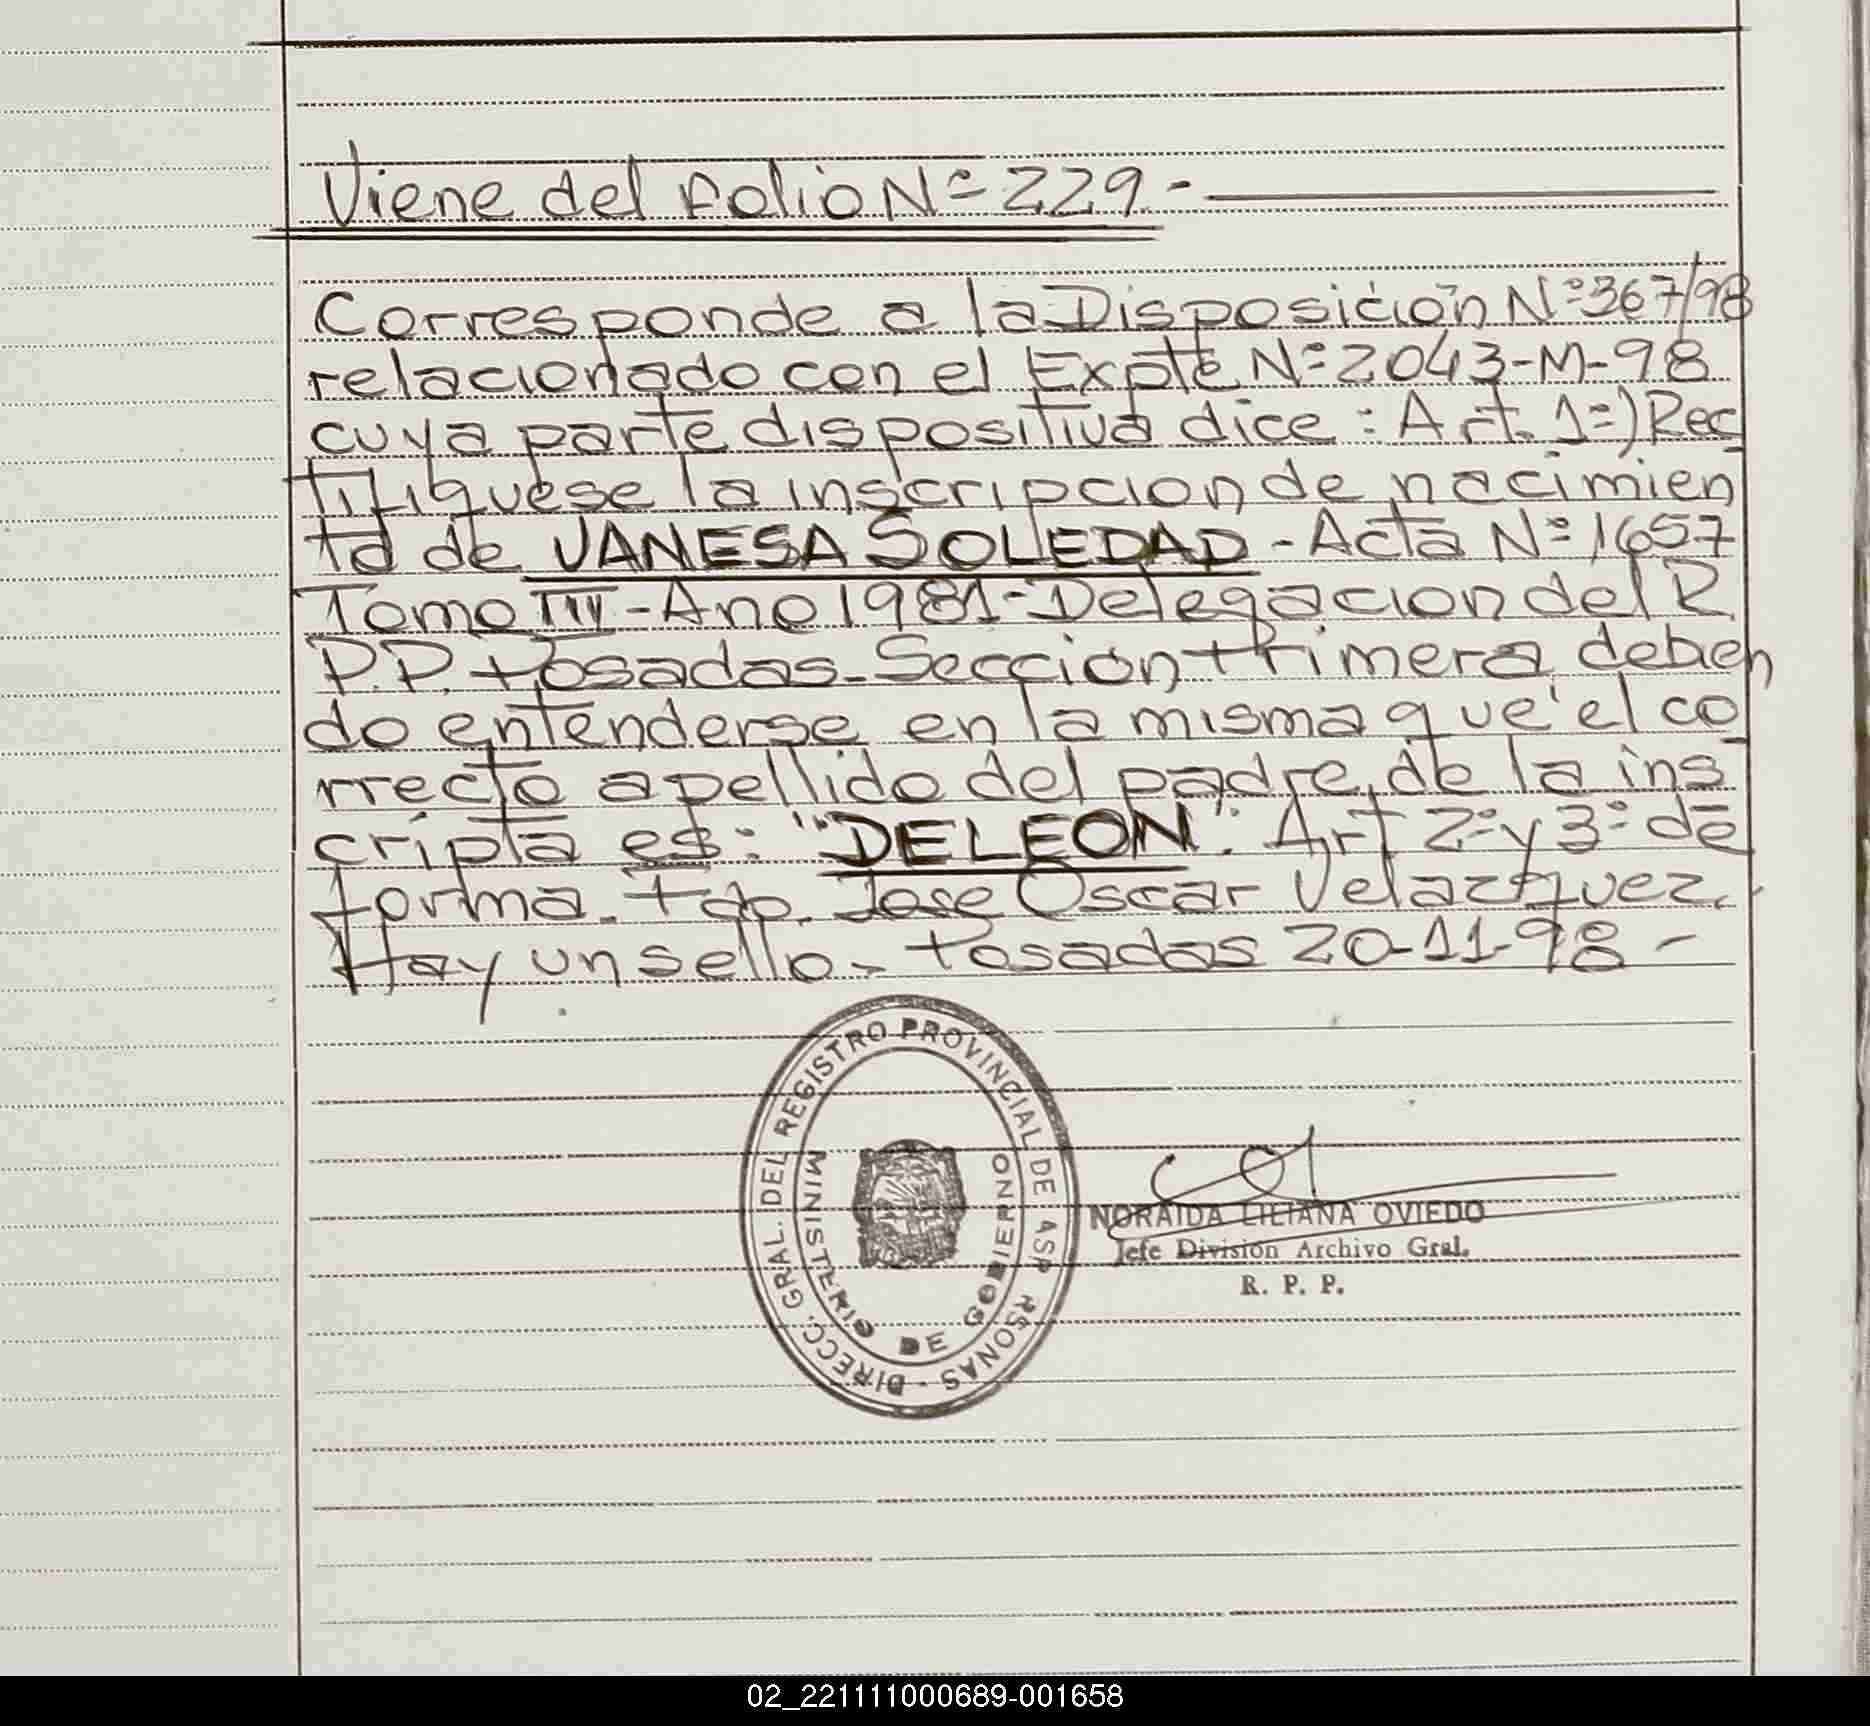 Viene del Folio Nº 229-
Corresponde a la Disposición Nº 367/98
relacionado con el Expte Nº 2043-M-98
cuya parte dispositiva dice: Art. 1º) Rec
tifiquese la inscripcion de nacimien
to de VANESA SOLEDAD - Acta Nº 1657
Tomo III - Ano 1981 - Delegacion del R.
P.P. Posadas - Sección Primera, debien
do entenderse en la misma que el co
rrecto apellido del padre de la ins
cripta es: "DELEON". Art 2º y 3º de
forma. Fdo. Jose Oscar Velazquez.
Hay un sello. - Posadas 20-11-98 -
DIRECC. GRAL. DEL REGISTRO PROVINCIAL DE LAS PERSONAS -
MINISTERIO DE GOBIERNO
NORAIDA LILIANA OVIEDO
Jefe División Archivo Gral.
R. P. P.
02_221111000689-001658